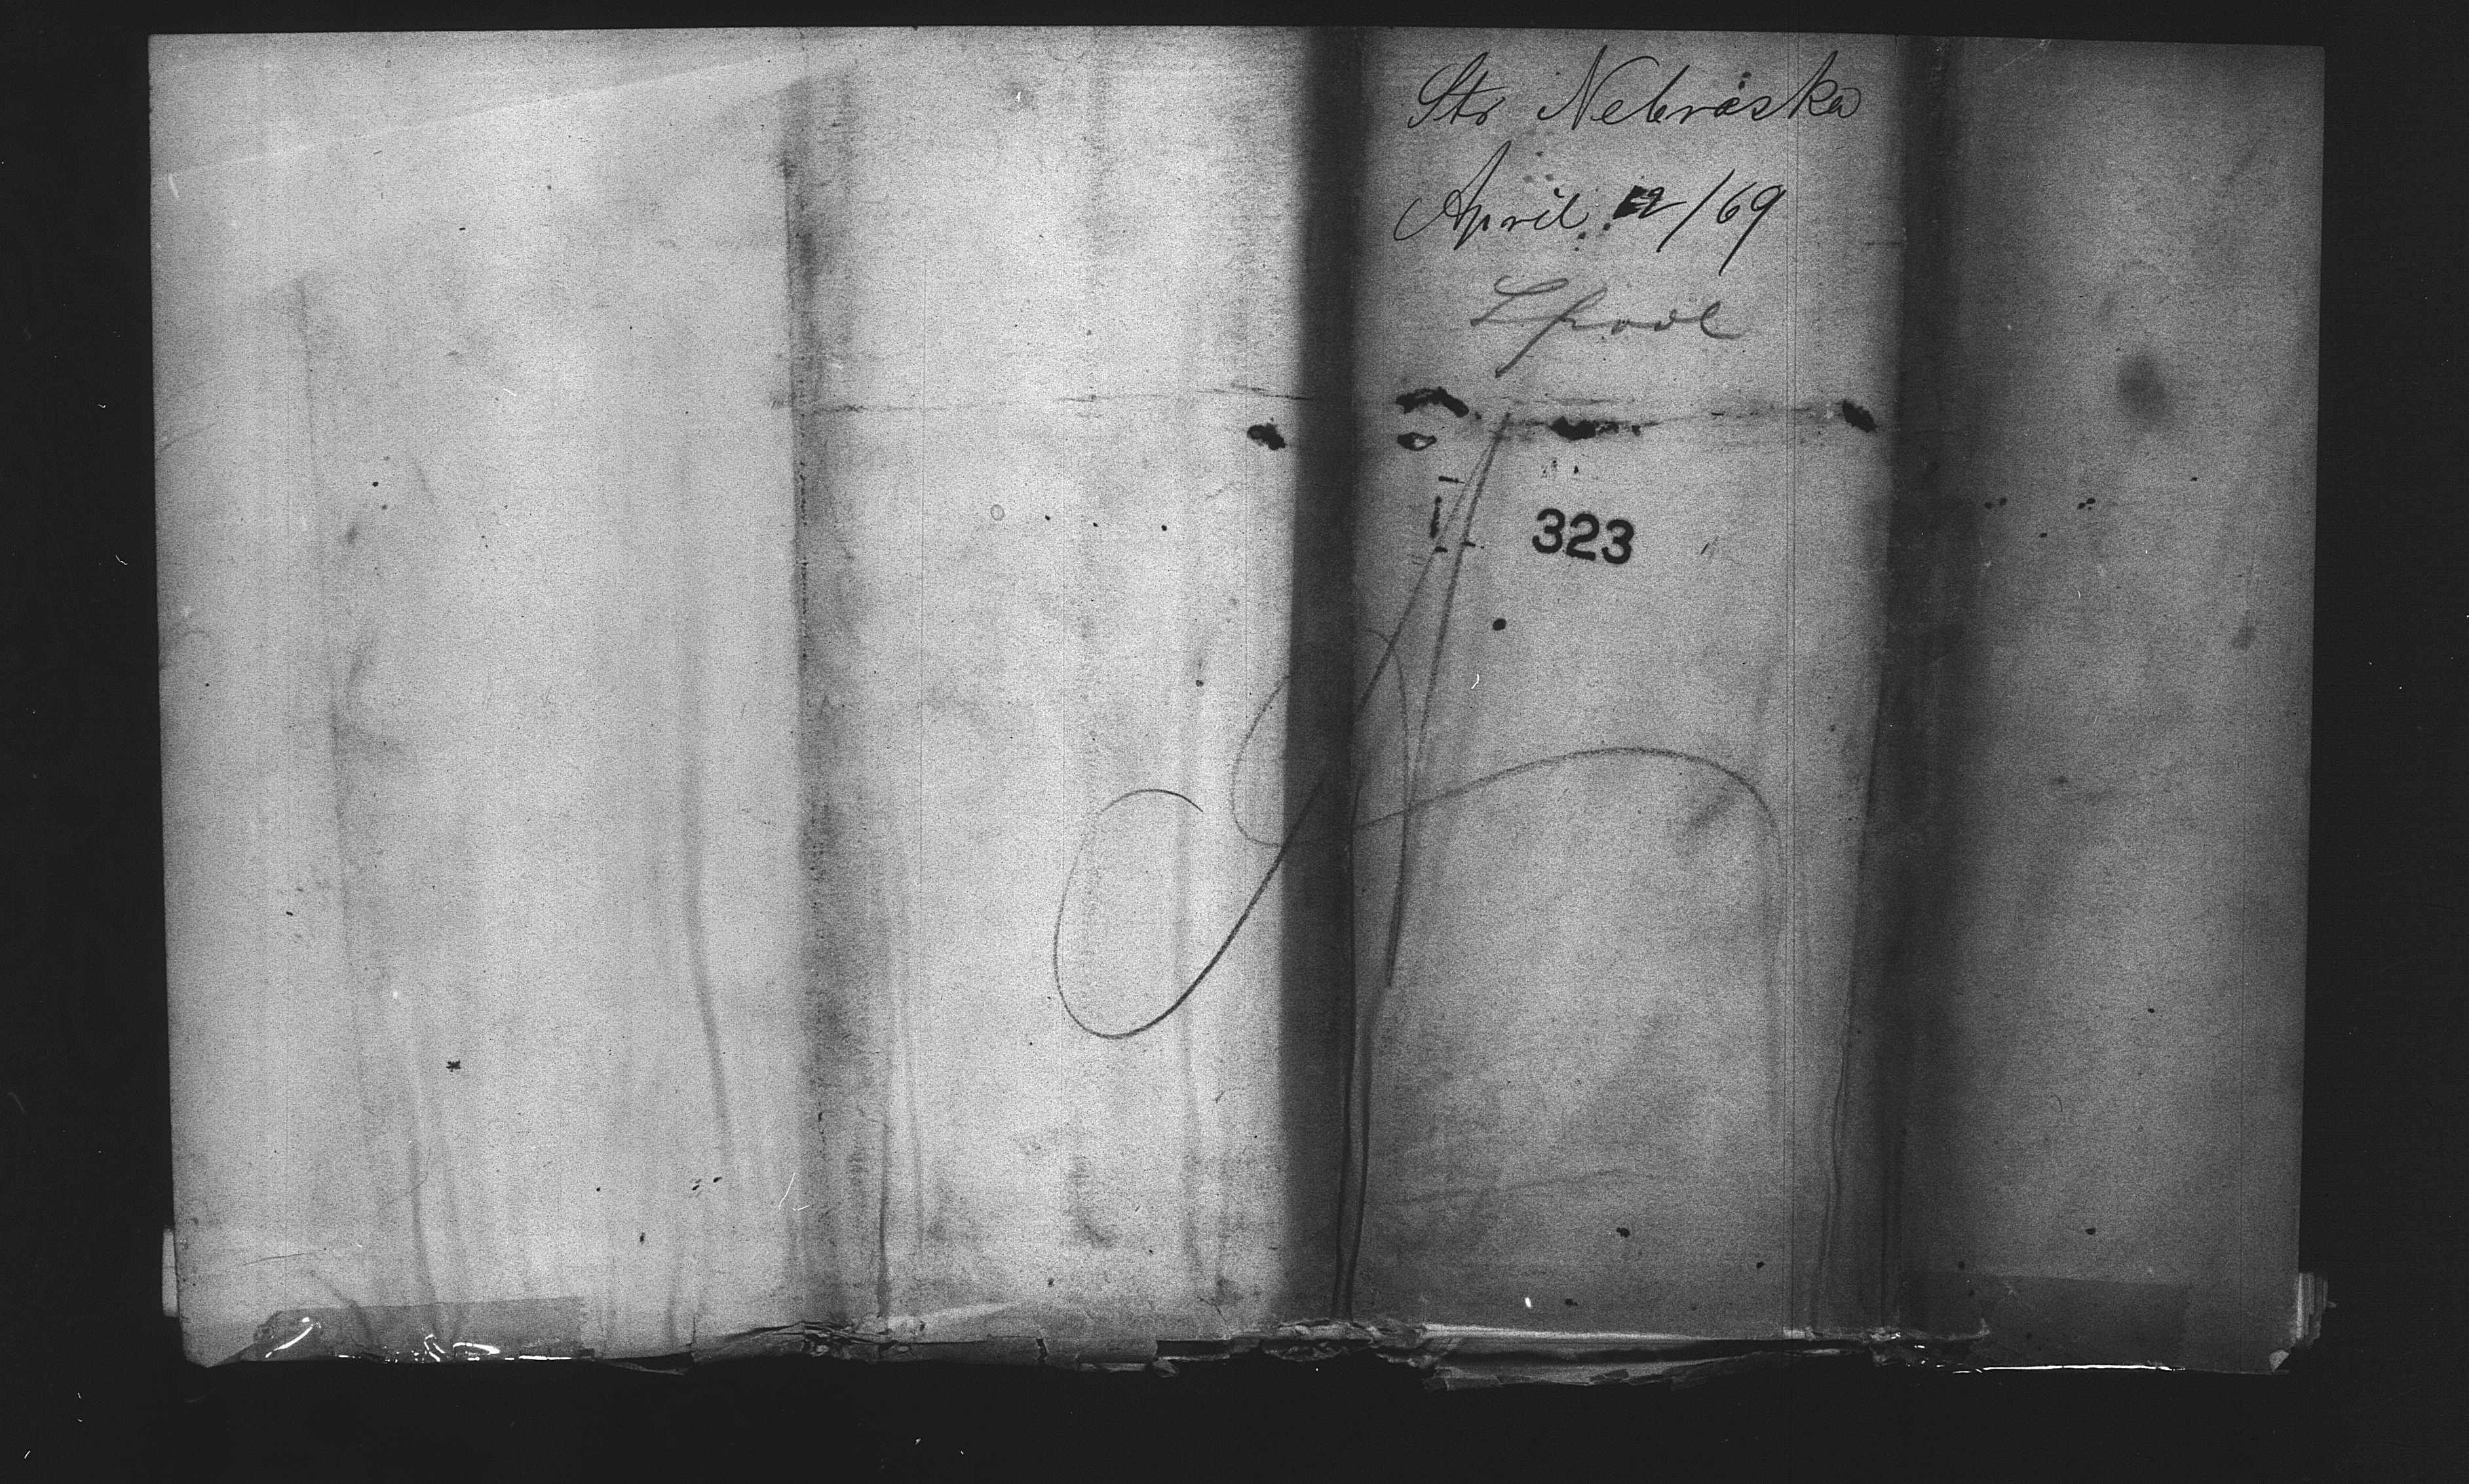 Str Nebraska
April 12/69
Lpool
323